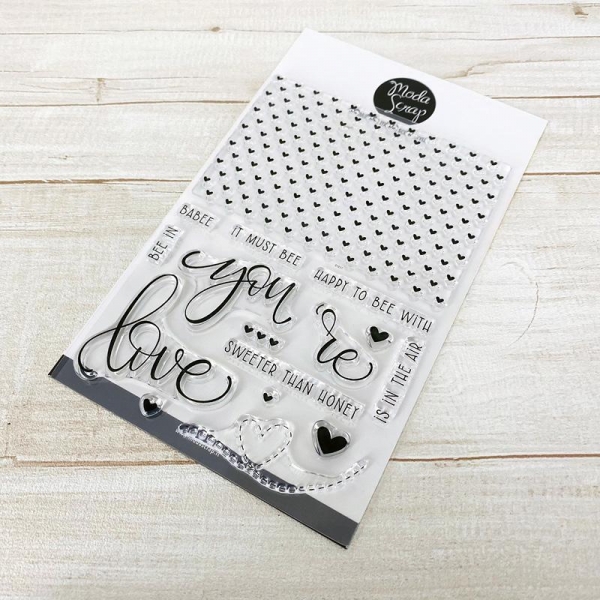 Moda
Scrap
BABEE
BEE IN
IT MUST BEE
HAPPY TO BEE WITH
you
're
love
SWEETER THAN HONEY
iS IN THE AIR